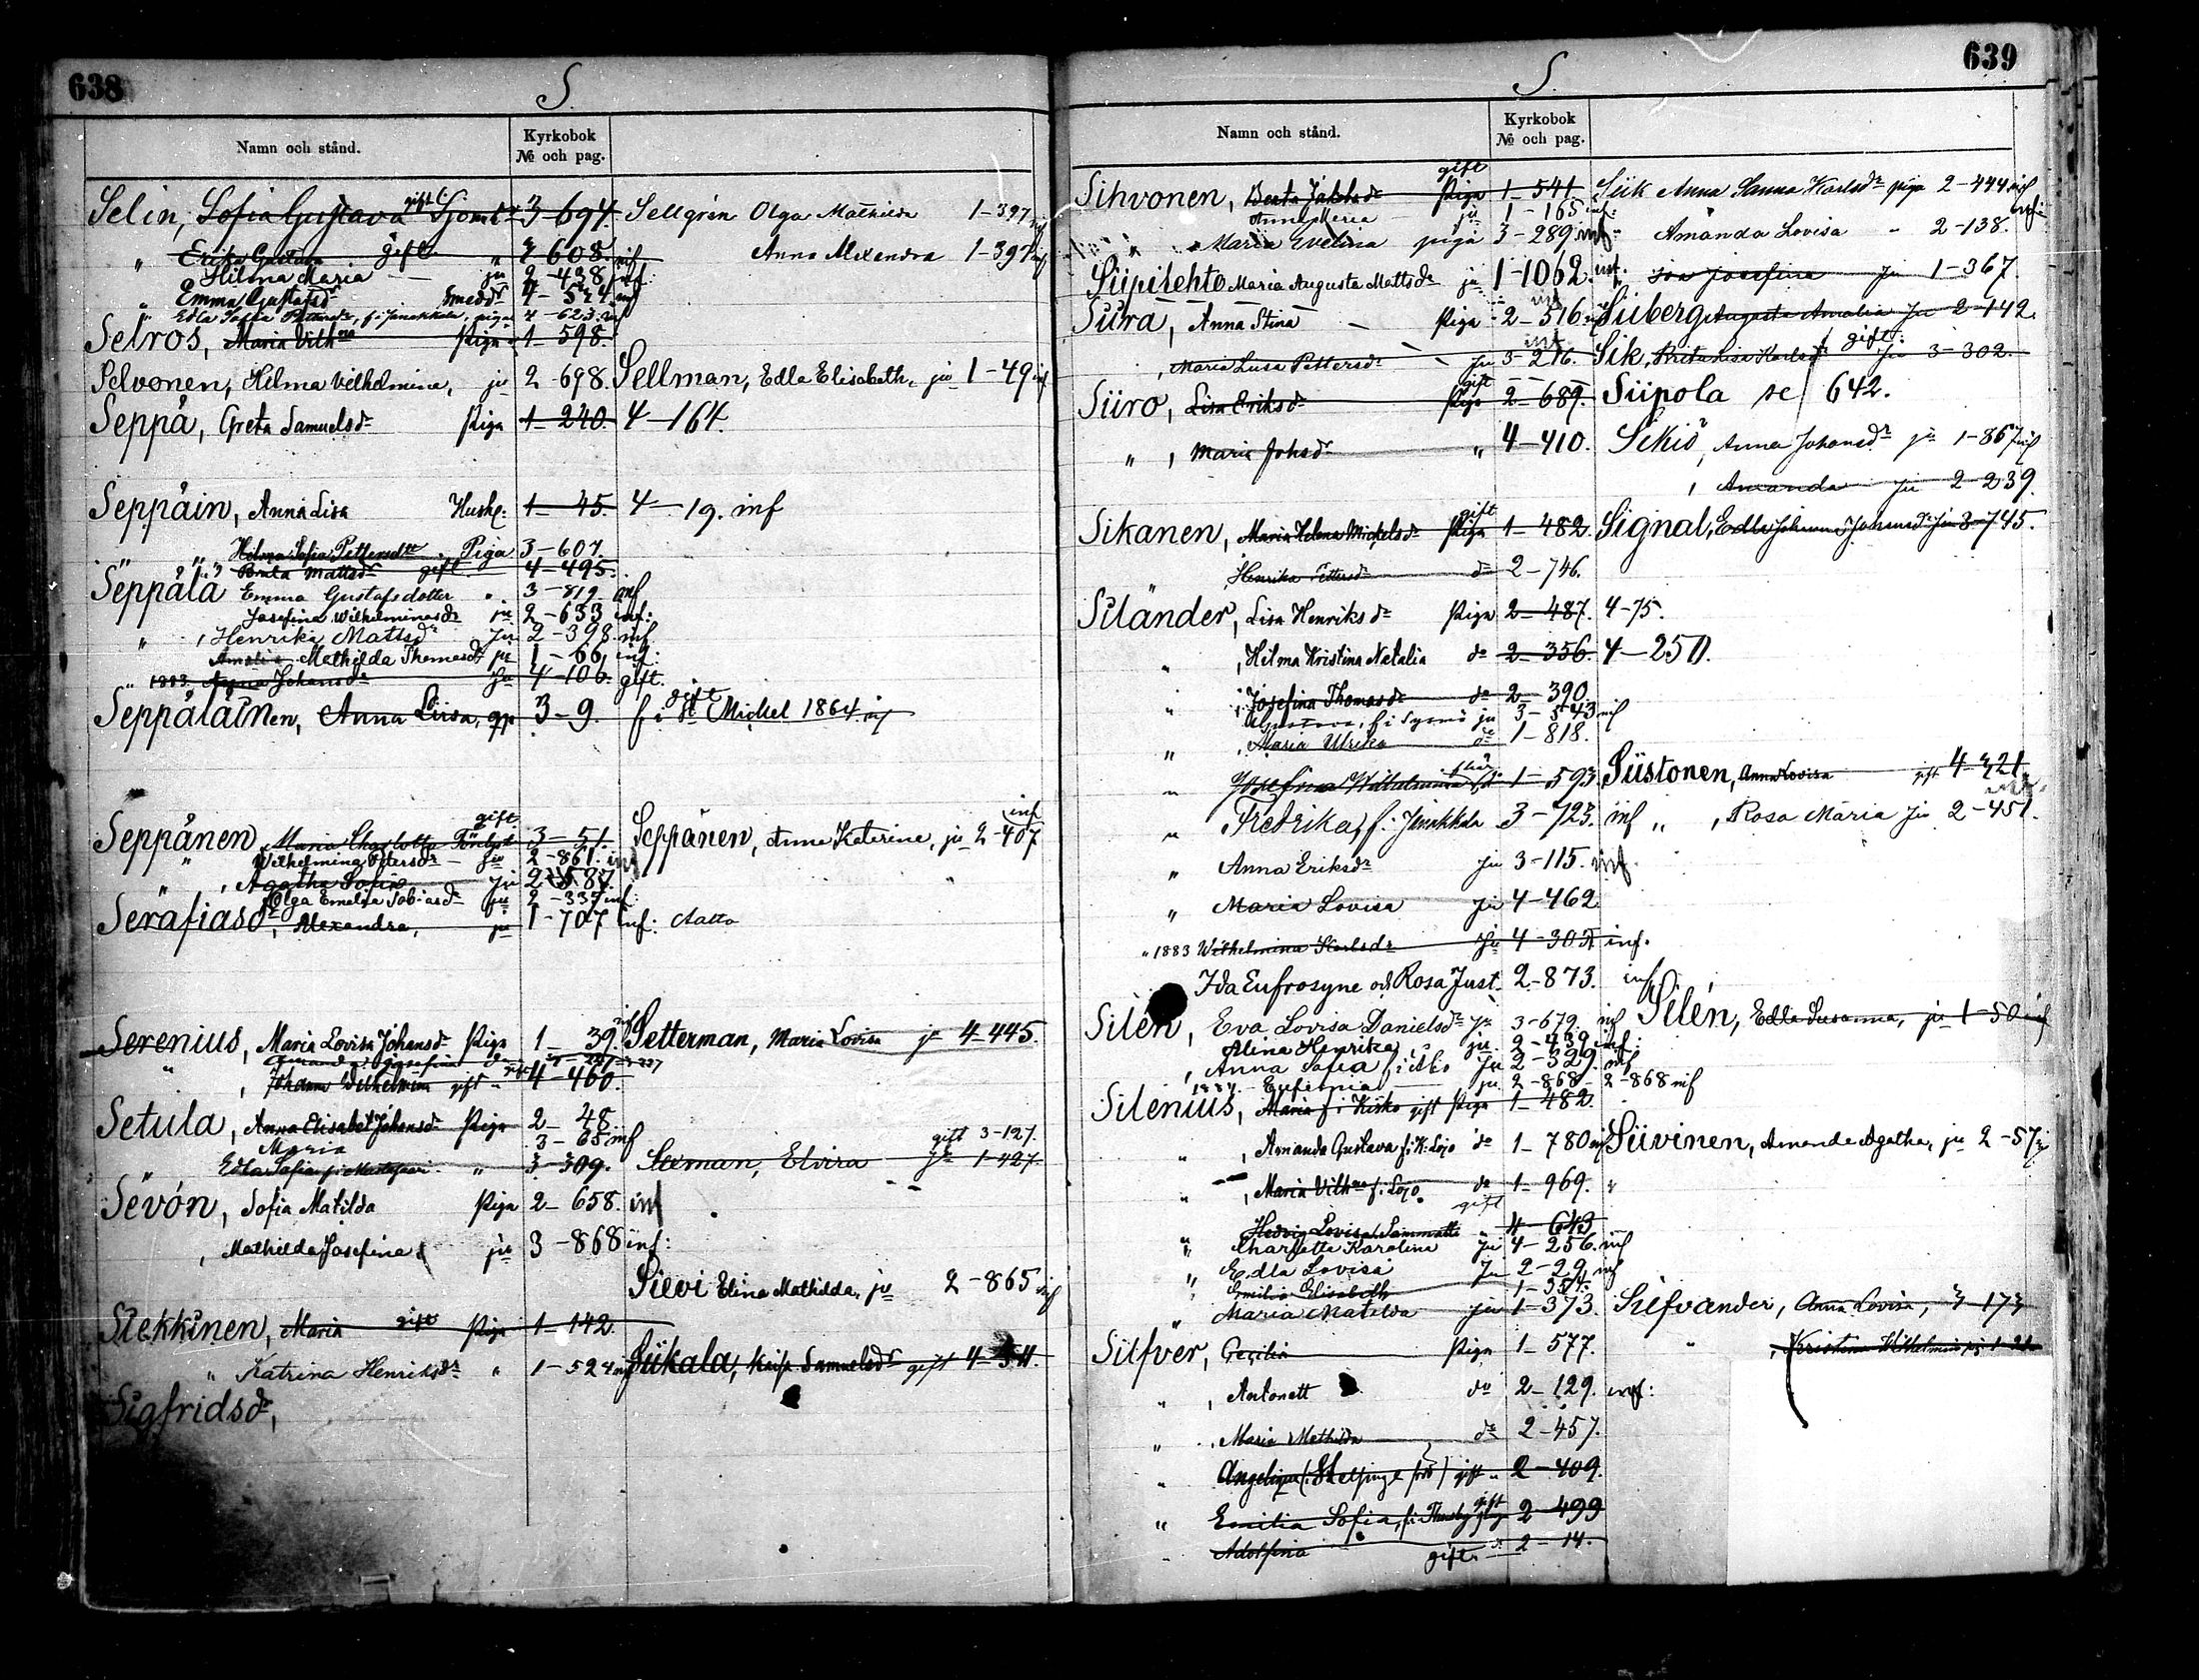 638
S.
Namn och stånd.
Kyrkobok
№ och pag.
Selin, Sofia Gustava gift 3-694. Sellgrén Olga Mathilda 1-397 inf
" Erika Gustava gift " 608. inf Anna Alexandra 1-397 inf
Hilma Maria ja 2-438 inf:
" Emma Gustafsdr Smedsdr 4-544 inf
" Edla Sofia Pettersdr, f. i Janakkala, piga 4-623 inf
Selros, Maria Vilhna Piga 1-598
Selvonen, Hilma Vilhelmina, ja 2-698. Sellman, Edla Elisabeth, ja 1-49 inf
Seppä, Greta Samuelsdr Piga 1-240. 4-164.
Seppäin, Anna Lisa Hush. 1-45. 4-19. inf
" " Hilma Sofia Pettersdtr. Piga 3-607.
Mattsdr gift. 4-495.
Seppälä Emma Gustafsdotter " 3-819. inf
Josefina Wilhelminasdr ja 2-633 inf:
" , Henrika Mattsdr ja 2-398. inf
Amalia Mathilda Thomasdr ja 1-66 inf:
" 1883. Johansdr ja 4-106. gift.
Seppäläinen, Anna Liisa, 3-9. f. i St Mickel 1864 inf
Seppänen Maria Charlotta gift 3-51. Seppänen, Anna Katarina, ja 2-407 inf
" Wilhelmina Petersdr ja 2-861. inf
" , Agatha Sofia ja 2-587.
Olga Emelia Tobiasdr ja 2-337 inf:
Serafiasdr, Alexandra, ja 1-707 inf: Aatto
Serenius, Maria Lovisa Johansdr Piga 1-39. inf Setterman, Maria Lovisa ja 4-445.
" Josefina
, Johanna Wilhelmina gift " 4-460.
Setula, Anna Elisabet Johansdr Piga 2-48.
Maria 3-65 inf gift 3-127.
" Edla Sofia 3-309. Seman, Elvira ja 1-427.
Sevón, Sofia Matilda Piga 2-658. inf
, Mathilda Josefina ja 3-868 inf:
Sievi Elina Mathilda, ja 2-865 inf
Siekkinen, Maria gift Piga 1-142.
" Katrina Henriksdr " 1-524 inf Siikala, Kaisa Samuelsdr gift 4-54.
Sigfridsdr,
639
S.
Namn och stånd.
Kyrkobok
№ och pag.
Sihvonen, Beata Jakobsdr gift Piga 1-541. Siik Anna Sanna Karlsdr piga 2-444 inf
Anna Maria ja 1-165 inf:
" Maria Evelina piga 3-289 inf " Amanda Lovisa " 2-138. inf:
Siipilehto Maria Augusta Mattsdr ja 1-1062. inf. Ida Josefina ja 1-367.
Siira, Anna Stina Piga 2-516. Siiberg Augusta Amalia ja 2-142.
, Maria Lusa Pettersdr ja 3-216. Sik, Karlsdr gift. ja 3-302.
Siiro, Lisa Eriksdr gift Piga 2-689. Siipola se 642.
" , Maria Johsdr " 4-410. Sikiö, Anna Johansdr ja 1-867 inf
, Amanda ja 2-239.
Sikanen, Maria Helena Mickelsdr gift Piga 1-482. Signal, Edla Johanna Johansdr ja 3-745.
Henrika Pettersdr do 2-746.
Siländer, Lisa Henriksdr Piga 2-487. 4-75.
" , Hilma Kristina Natalia do 2-356. 4-250.
" , Josefina Thomasdr do 2-390.
Gustava, f. i Sysmä ja 3-543 inf
" , Maria Ulrika do 1-818.
" Josefina Wilhelmina 1-593. Siistonen, Anna Lovisa gift 4-421.
" Fredrika, f. i Janakkala 3-723. inf " , Rosa Maria ja 2-451.
" Anna Eriksdr ja 3-115. inf
" Maria Lovisa ja 4-462
" 1883 Wilhelmina Karlsdr ja 4-305. inf.
Ida Eufrosyne och Rosa Just. 2-873. inf
Silén, Eva Lovisa Danielsdr ja 3-679. inf Silén, Edla Susanna, ja 1-50 inf
Alina Henrika ja 2-439 inf:
, Anna Sofia ja 2-329. inf
Eufemia ja 2-868 - 2-868 inf
Silenius, Maria f. i Kisko gift Piga 1-482.
" , Amanda Gustava f. i K. Lojo do 1-780 inf Siivinen, Amanda Agatha, ja 2-57 inf
" , Maria Vilhna f. i Lojo do 1-969. "
" Hedvig Lovisa Sammatti gift 4-643
" Charlotta Karolina ja 4-256. inf
" Edla Lovisa ja 2-29 inf
" Emilia Elisabeth 1-354.
" Maria Matilda ja 1-373. Silfvander, Anna Lovisa, 3-173
Silfver, Cecilia Piga 1-577. " , Kristina Wilhelmina
" , Antonett do 2-129. inf:
" , Maria Mathilda do 2-457.
" Angelina gift " 2-409.
" Emilia Sofia, gift 2-499
" Adolfina gift. 2-14.